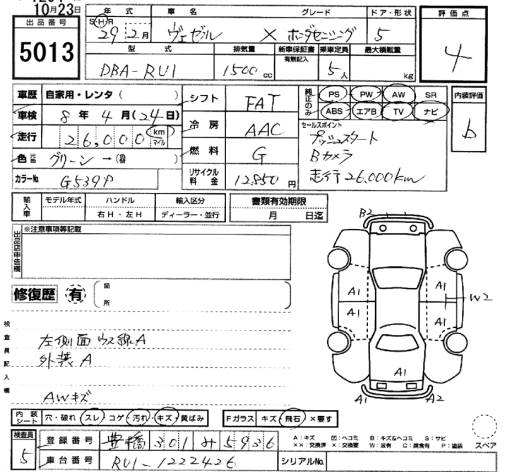 10月23日
出品番号 5013
年月 車名 グレード ドア・形状 評価点
S・H・R 29年2月 ヴェゼル X ホンダセンシング 5
4
型式 排気量 新車保証書 有無記入 乗車定員 最大積載量
DBA-RU1 1500cc 5人 kg
車歴 自家用・レンタ( ) シフト FAT 純正のみ PS PW AW SR 内装評価
車検 8年4月(24日) ABS エアB TV ナビ
b
走行 26,000 km マイル 冷房 AAC セールスポイント
プッシュスタート
Bカメラ
色 グリーン→ 燃料 G 走行26.000km
カラーNo G539P リサイクル料金 12850円
輸入車 モデル年式 ハンドル 輸入区分 書類有効期限
右H・左H ディーラー・並行 月 日迄
出品店申告欄 ※注意事項等記載
B2
A1 A1
A1 A1 W2
A1
A1
A2
修復歴 有 箇所
検査員記入欄
左側面ウス線A
外装A
AWキズ
内装シート 穴・破れ スレ コゲ 汚れ キズ 黄ばみ Fガラス キズ 飛石 ×要す
検査員 5
登録番号 豊橋301み5926
A:キズ U:ヘコミ B:キズ&ヘコミ S:サビ
××:交換済 ×:交換要 W:波有 C:腐食有 P:塗装 スペア
車台番号 RU1-1222426 シリアルNo.